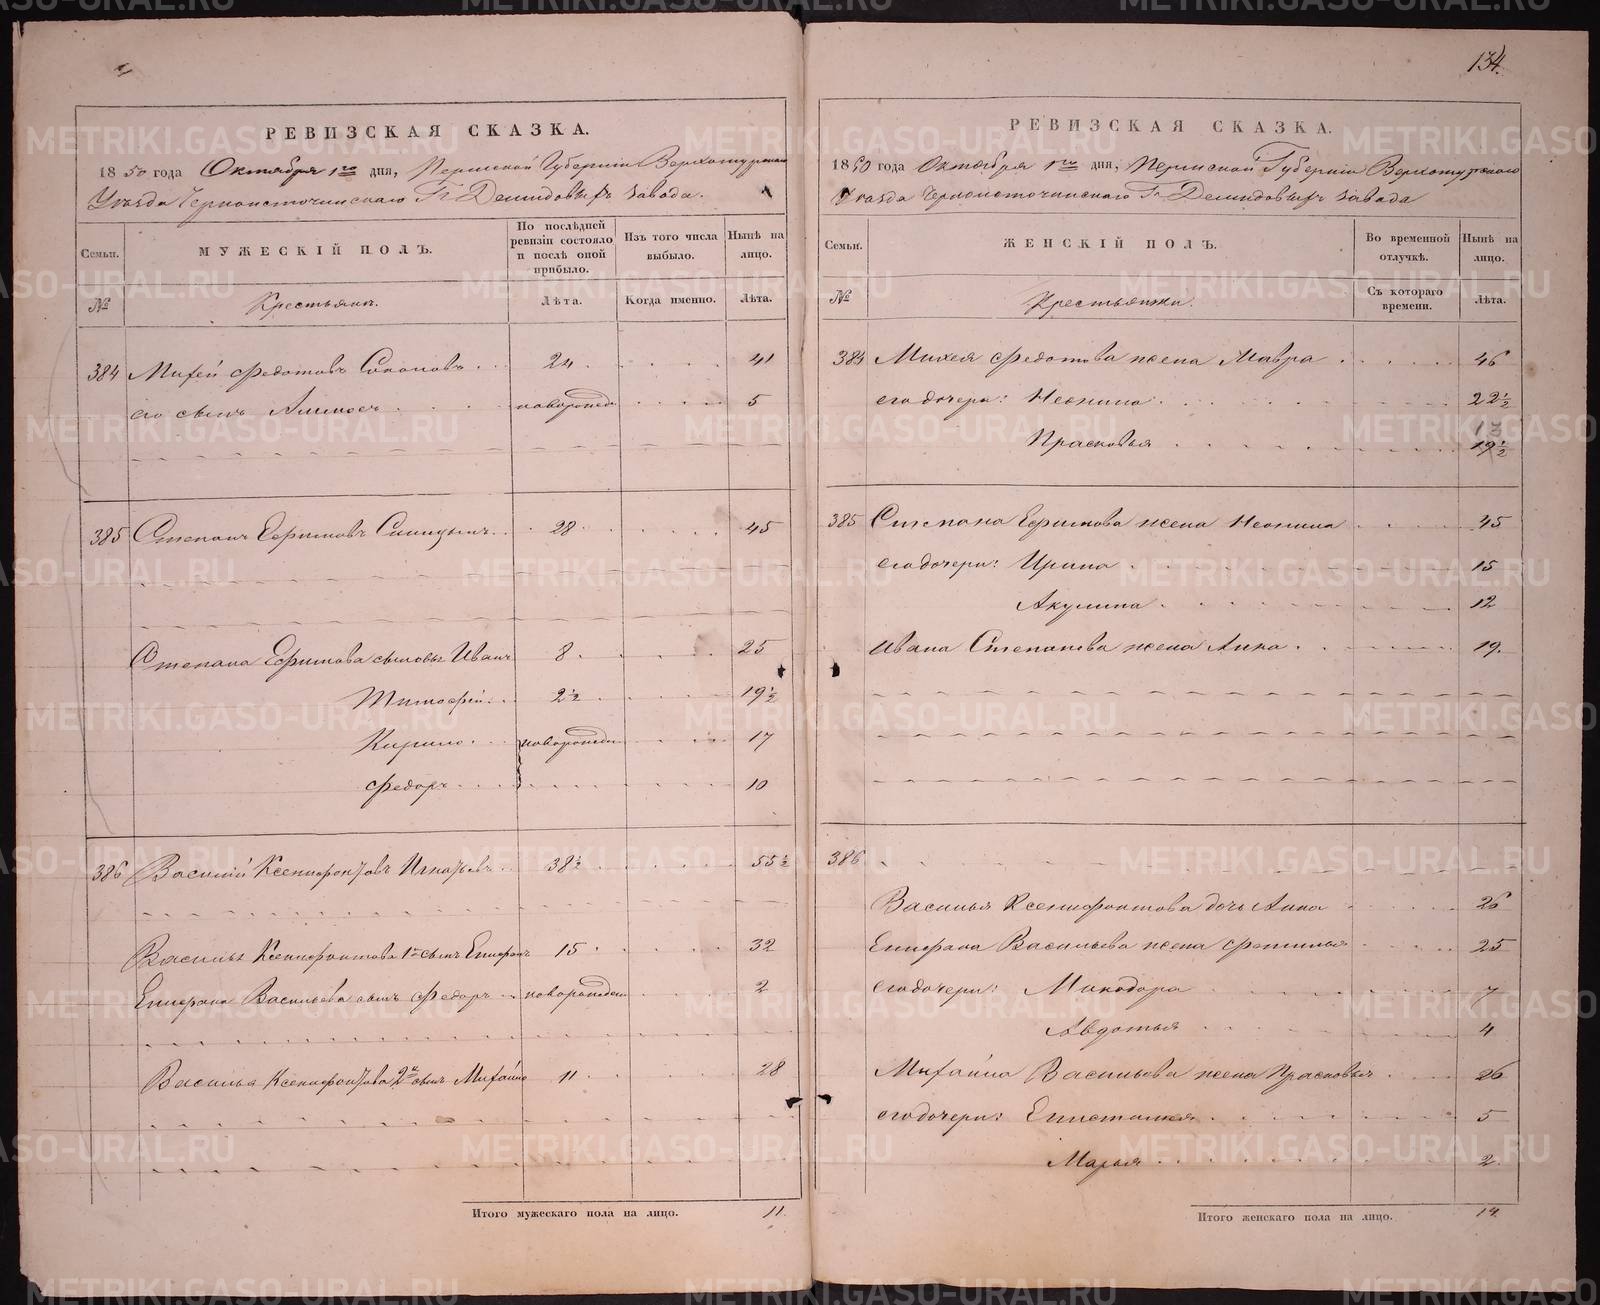 134.
РЕВИЗСКАЯ СКАЗКА.
1850 года Октября 1го дня, Пермской Губернiи Верхотурскаго
Уѣзда Черноисточинскаго Гг Демидовыхъ завода.
Семьи.
МУЖЕСКIЙ ПОЛЪ.
По послѣдней ревизiи состояло и послѣ оной прибыло.
Изъ того числа выбыло.
Нынѣ на лицо.
№
Крестьянъ.
Лѣта.
Когда именно.
Лѣта.
384 Михей Федотовъ 24 41
его сынъ новорожде 5
385 Степанъ Ефимовъ Синицынъ 28 45
Степана Ефимова сыновья Иванъ 8 25
Тимофей 2½ 19½
Кирило новорожде 17
Федоръ 10
386 Василiй Ксенофонтовъ Игнатьевъ 38½ 55½
Василья Ксенофонтова 1й сынъ Епифанъ 15 32
Епифана Васильева сынъ Федоръ новорожден 2
Василья Ксенофонтова 2й сынъ Михайло 11 28
Итого мужескаго пола на лицо. 11.
РЕВИЗСКАЯ СКАЗКА.
1850 года Октября 1го дня, Пермской Губернiи Верхотурскаго
Уѣзда Черноисточинскаго Гг Демидовыхъ завода
Семьи.
ЖЕНСКIЙ ПОЛЪ.
Во временной отлучкѣ.
Нынѣ на лицо.
№
Крестьянки.
Съ котораго времени.
Лѣта.
384 Михея Федотова жена Мавра 46
его дочери: Неонила 22½
Прасковья 19½
385 Степана Ефимова жена Неонила 45
его дочери: Ирина 15
Акулина 12
Ивана Степанова жена Анна 19.
386
Василья Ксенофонтова дочь Анна 26
Епифана Васильева жена Фетинья 25
его дочери: 7
Авдотья 4
Михайла Васильева жена Прасковья 26
его дочери: Епистимея 5
Марья 2.
Итого женскаго пола на лицо. 14.
METRIKI.GASO-URAL.RU